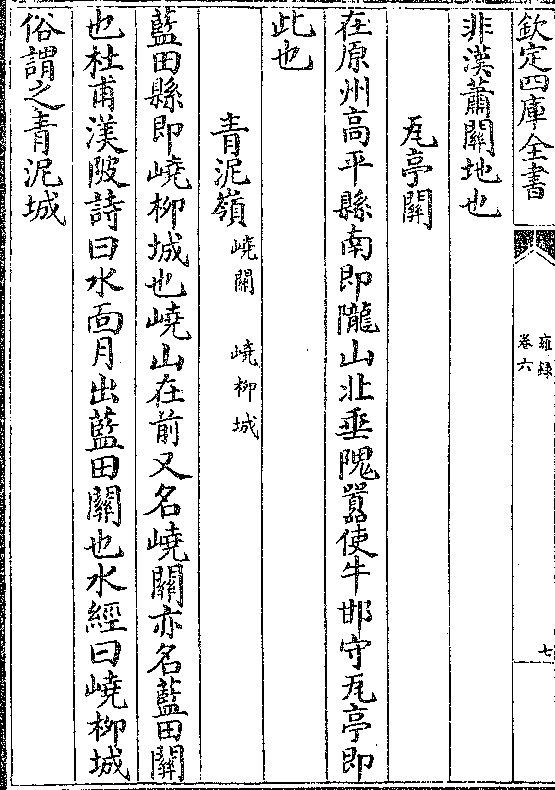 欽定四庫全書
雍錄
卷六
七
非漢蕭關地也
瓦亭關
在原州高平縣南即隴山北垂隗囂使牛邯守瓦亭即
此也
青泥嶺嶢關　嶢柳城
藍田縣即嶢柳城也嶢山在前又名嶢關亦名藍田關
也杜甫渼陂詩曰水面月出藍田關也水經曰嶢柳城
俗謂之青泥城